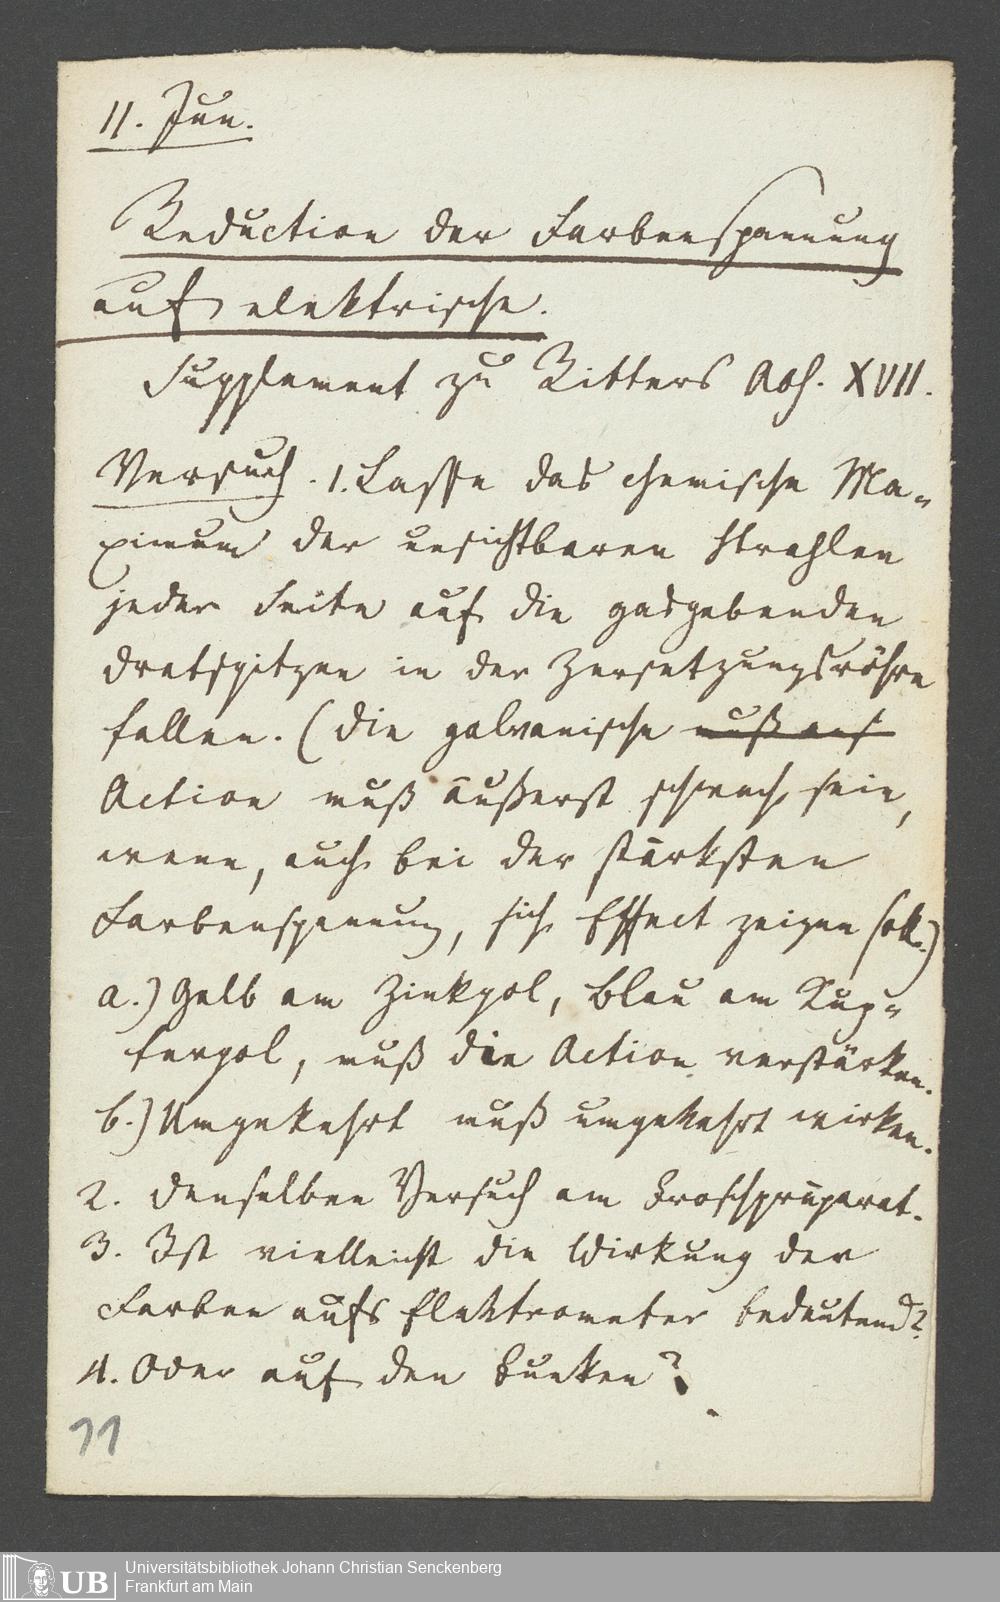 11. Jun.
Reduction der Farbenspannung
auf elektrische.
Supplement zu Ritters Abh. XVII.
Versuch. 1. Lasse das chemische Ma-
ximum der unsichtbaren Strahlen
jeder Seite auf die gasgebenden
Dratspitzen in der Zersetzungsröhre
fallen. (Die galvanische muß auf
Action muß äußerst schwach sein,
wenn, auch bei der stärksten
Farbenspannung, sich Effect zeigen soll.)
a.) Gelb am Zinkpol, Blau am Kup-
ferpol, muß die Action verstärken.
b.) Umgekehrt muß umgekehrt wirken.
2. Denselben Versuch am Froschpräparat.
3. Ist vielleicht die Wirkung der
Farben aufs Elektrometer bedeutend?
4. Oder auf den Funken?
11
UB
Universitätsbibliothek Johann Christian Senckenberg
Frankfurt am Main